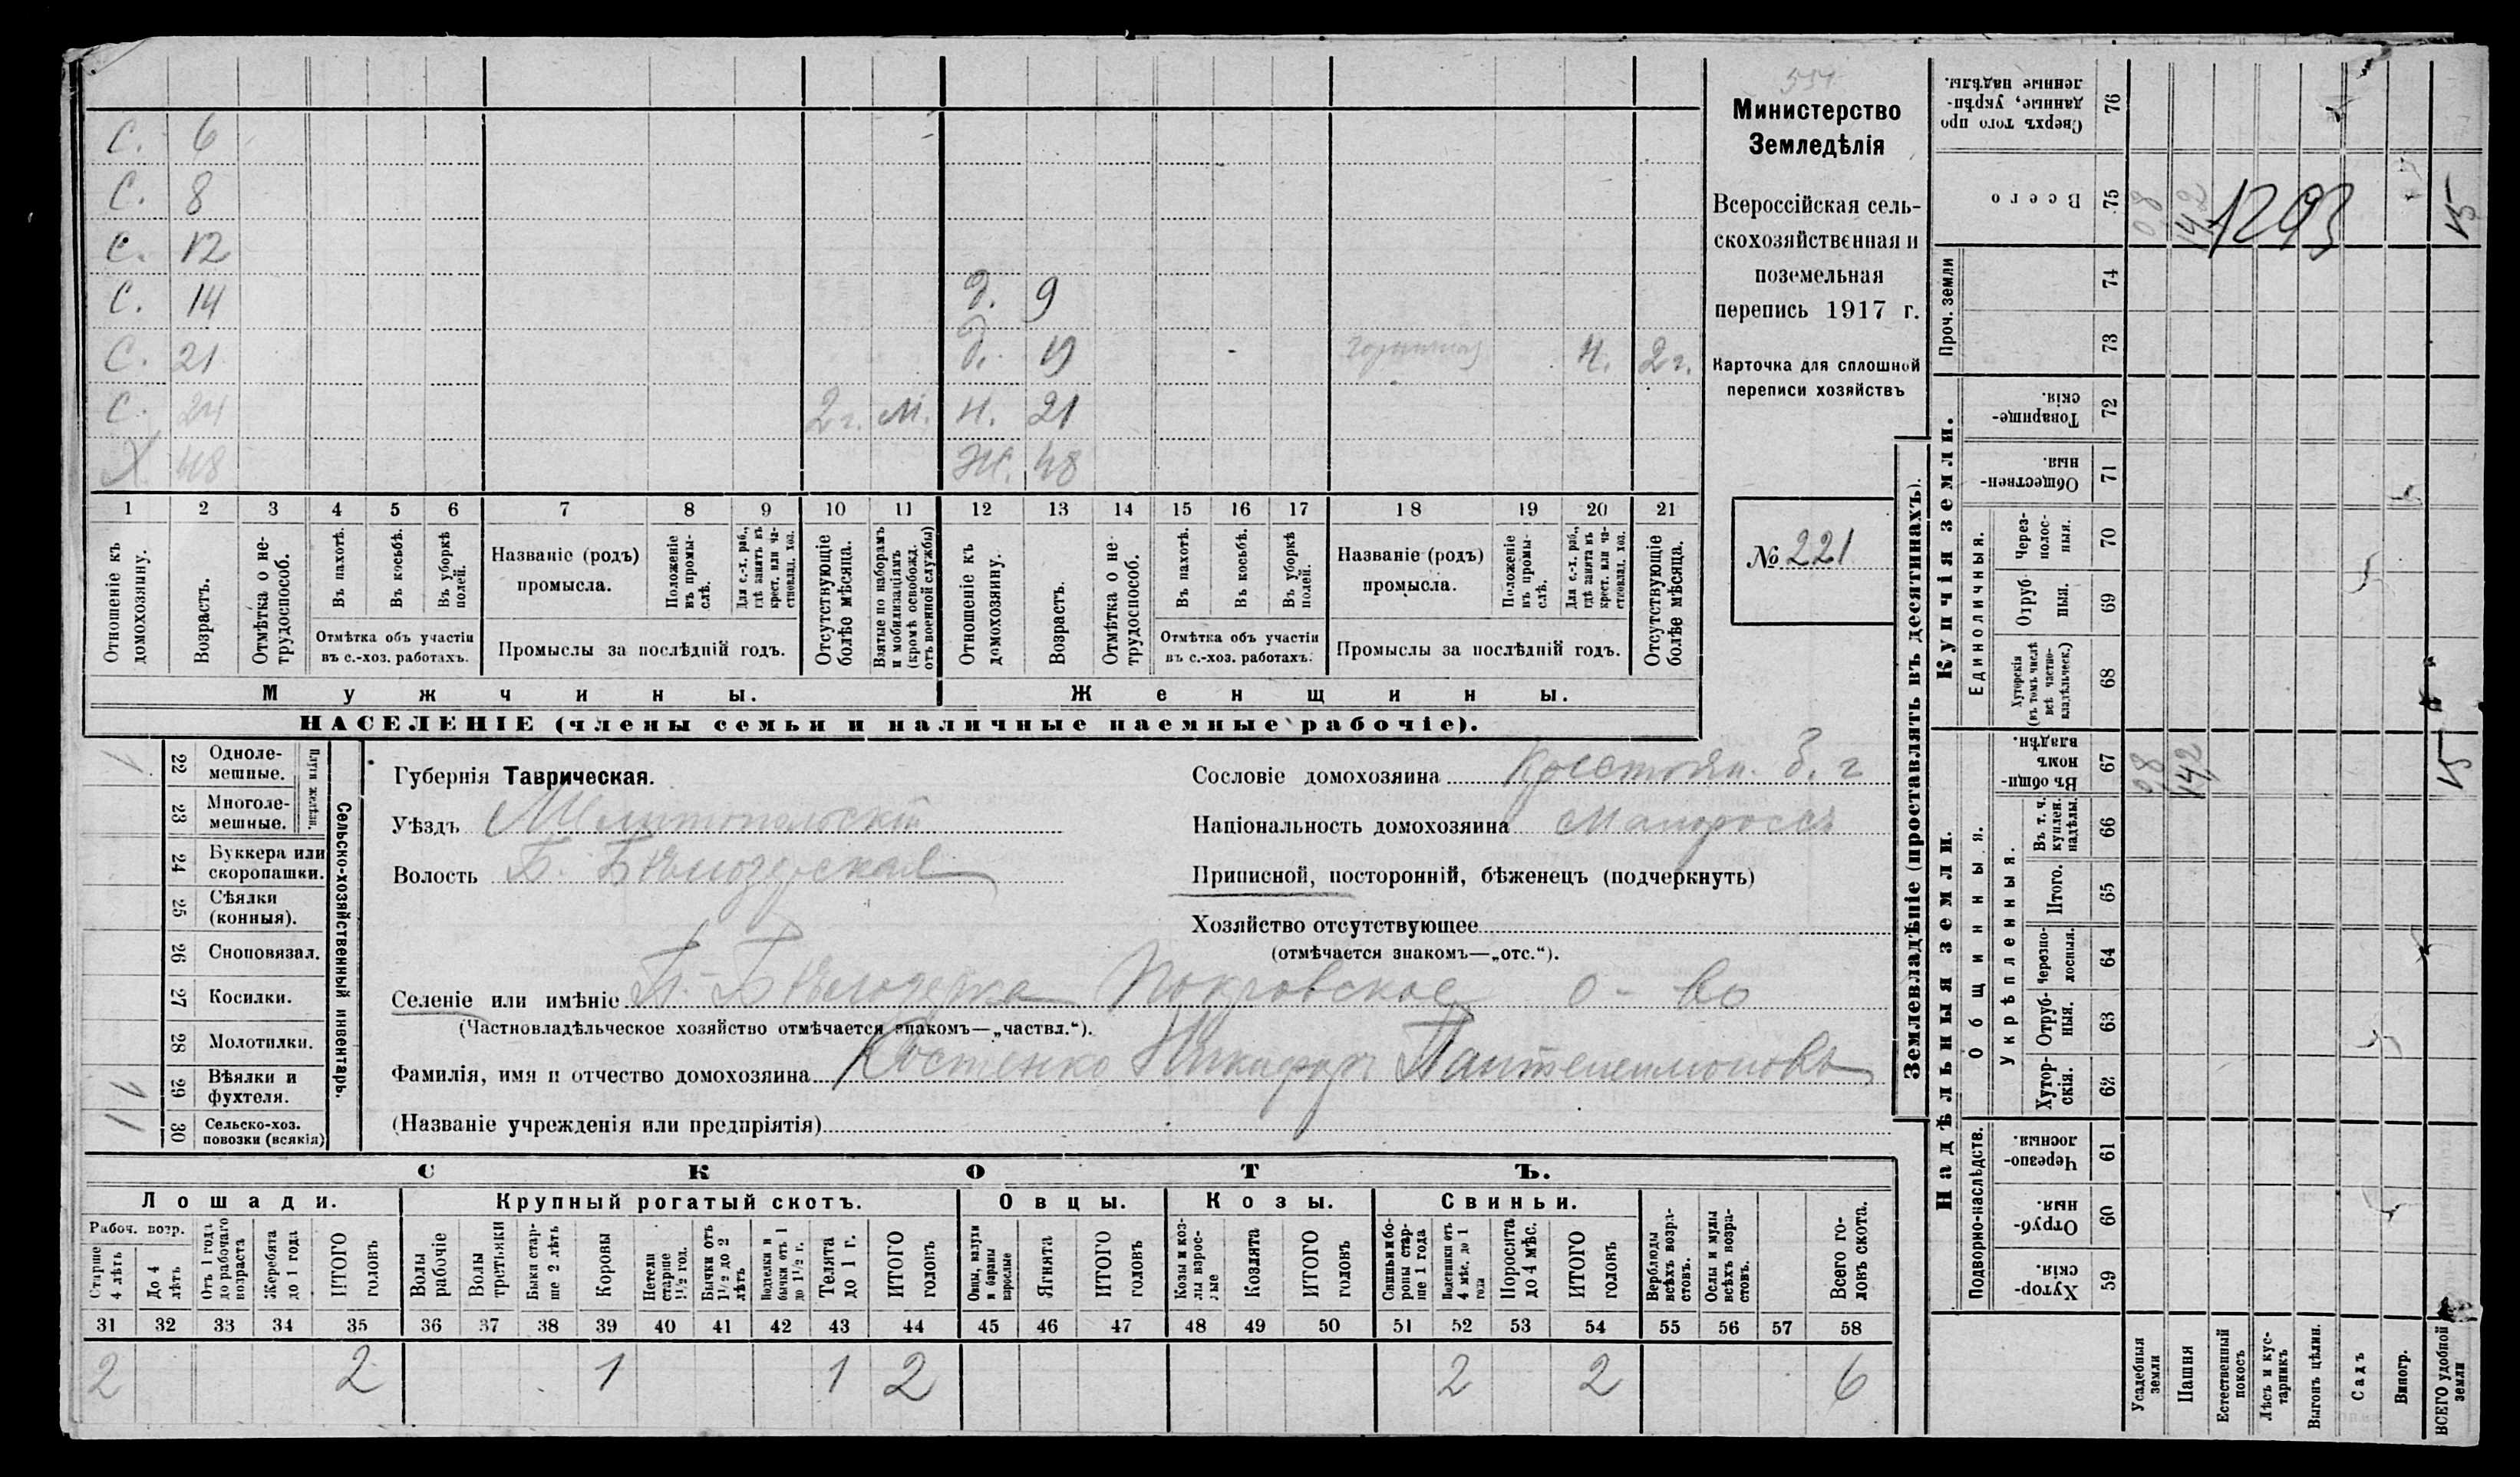 С. 6
С. 8
С. 12
С. 14 д. 9
С. 21 д. 19 горничная Н. 2 г.
С. 24 2 г. М. Н. 21
Х 48 Ж. 48
1 2 3 4 5 6 7 8 9 10 11 12 13 14 15 16 17 18 19 20 21
Отношеніе къ домохозяину.
Возрастъ.
Отмѣтка о нетрудоспособ.
Въ пахотѣ.
Въ косьбѣ.
Въ уборкѣ полей.
Отмѣтка объ участіи въ с.-хоз. работахъ.
Названіе (родъ) промысла.
Положеніе въ промыслѣ.
Для с.-х. раб., гдѣ занятъ въ крест. или частновлад. хоз.
Промыслы за послѣдній годъ.
Отсутствующіе болѣе мѣсяца.
Взятые по наборамъ и мобилизаціямъ (кромѣ освобожд. отъ военной службы)
Отношеніе къ домохозяину.
Возрастъ.
Отмѣтка о нетрудоспособ.
Въ пахотѣ.
Въ косьбѣ.
Въ уборкѣ полей.
Отмѣтка объ участіи въ с.-хоз. работахъ.
Названіе (родъ) промысла.
Положеніе въ промыслѣ.
Для с.-х. раб., гдѣ занята въ крест. или частновлад. хоз.
Промыслы за послѣдній годъ.
Отсутствующіе болѣе мѣсяца.
Мужчины. Женщины.
НАСЕЛЕНІЕ (члены семьи и наличные наемные рабочіе).
Министерство
Земледѣлія
Всероссійская сель-
скохозяйственная и
поземельная
перепись 1917 г.
Карточка для сплошной
переписи хозяйствъ
№ 221
Сельско-хозяйственный инвентарь.
Плуги желѣзн.
22 Одноле-
мешные.
23 Многоле-
мешные.
24 Буккера или
скоропашки.
25 Сѣялки
(конныя).
26 Сноповязал.
27 Косилки.
28 Молотилки.
29 Вѣялки и
фухтеля.
30 Сельско-хоз.
повозки (всякія)
Губернія Таврическая.
Уѣздъ Мелитопольскій
Волость Б. Бѣлозерская
Сословіе домохозяина Крестьян.
Національность домохозяина Малороссъ
Приписной, посторонній, бѣженецъ (подчеркнуть)
Хозяйство отсутствующее
(отмѣчается знакомъ—„отс.“).
Селеніе или имѣніе Б.-Бѣлозерка Покровское о-во
(Частновладѣльческое хозяйство отмѣчается знакомъ—„частвл.“).
Фамилія, имя и отчество домохозяина Костенко Никифоръ Пантелеимоновъ
(Названіе учрежденія или предпріятія)
СКОТЪ.
Лошади. Крупный рогатый скотъ. Овцы. Козы. Свиньи.
Рабоч. возр.
Старше 4 лѣтъ
До 4 лѣтъ
Отъ 1 года до рабочаго возраста
Жеребята до 1 года
ИТОГО головъ
Волы рабочіе
Волы третьяки
Быки старше 2 лѣтъ
Коровы
Нетели старше 1½ год.
Бычки отъ 1½ до 2 лѣтъ
Подтелки и бычки отъ 1 до 1½ г.
Телята до 1 г.
ИТОГО головъ
Овцы, валухи и бараны взрослые
Ягнята
ИТОГО головъ
Козы и козлы взрослые
Козлята
ИТОГО головъ
Свиньи и боровы старше 1 года
Подсвинки отъ 4 мѣс. до 1 года
Поросята до 4 мѣс.
ИТОГО головъ
Верблюды всѣхъ возрастовъ.
Ослы и мулы всѣхъ возрастовъ.
Всего головъ скота.
31 32 33 34 35 36 37 38 39 40 41 42 43 44 45 46 47 48 49 50 51 52 53 54 55 56 57 58
2 2 1 1 2 2 2 6
Землевладѣніе (проставлять въ десятинахъ).
Купчія земли.
Надѣльныя земли.
Сверхъ того проданные, укрѣпленные надѣлы. 76
Всего 75
Проч. земли 74 73
Товарищескія. 72
Общественныя. 71
Единоличныя.
Черезполосныя. 70
Отрубныя. 69
Хуторскія (въ томъ числѣ всѣ частновладѣльческ.) 68
Общинныя.
Въ общинномъ владѣн. 67
Укрѣпленныя.
Въ т. ч. куплен. надѣлы. 66
Итого. 65
Черезполосныя. 64
Отрубныя. 63
Хуторскія. 62
Подворно-наслѣдств.
Черезполосныя. 61
Отрубныя. 60
Хуторскія 59
Усадебныя земли 08 08
Пашня 142 142
Естественный покосъ
Лѣсъ и кустарникъ
Выгонъ цѣлин.
Садъ
Виногр.
ВСЕГО удобной земли 15 15
1293